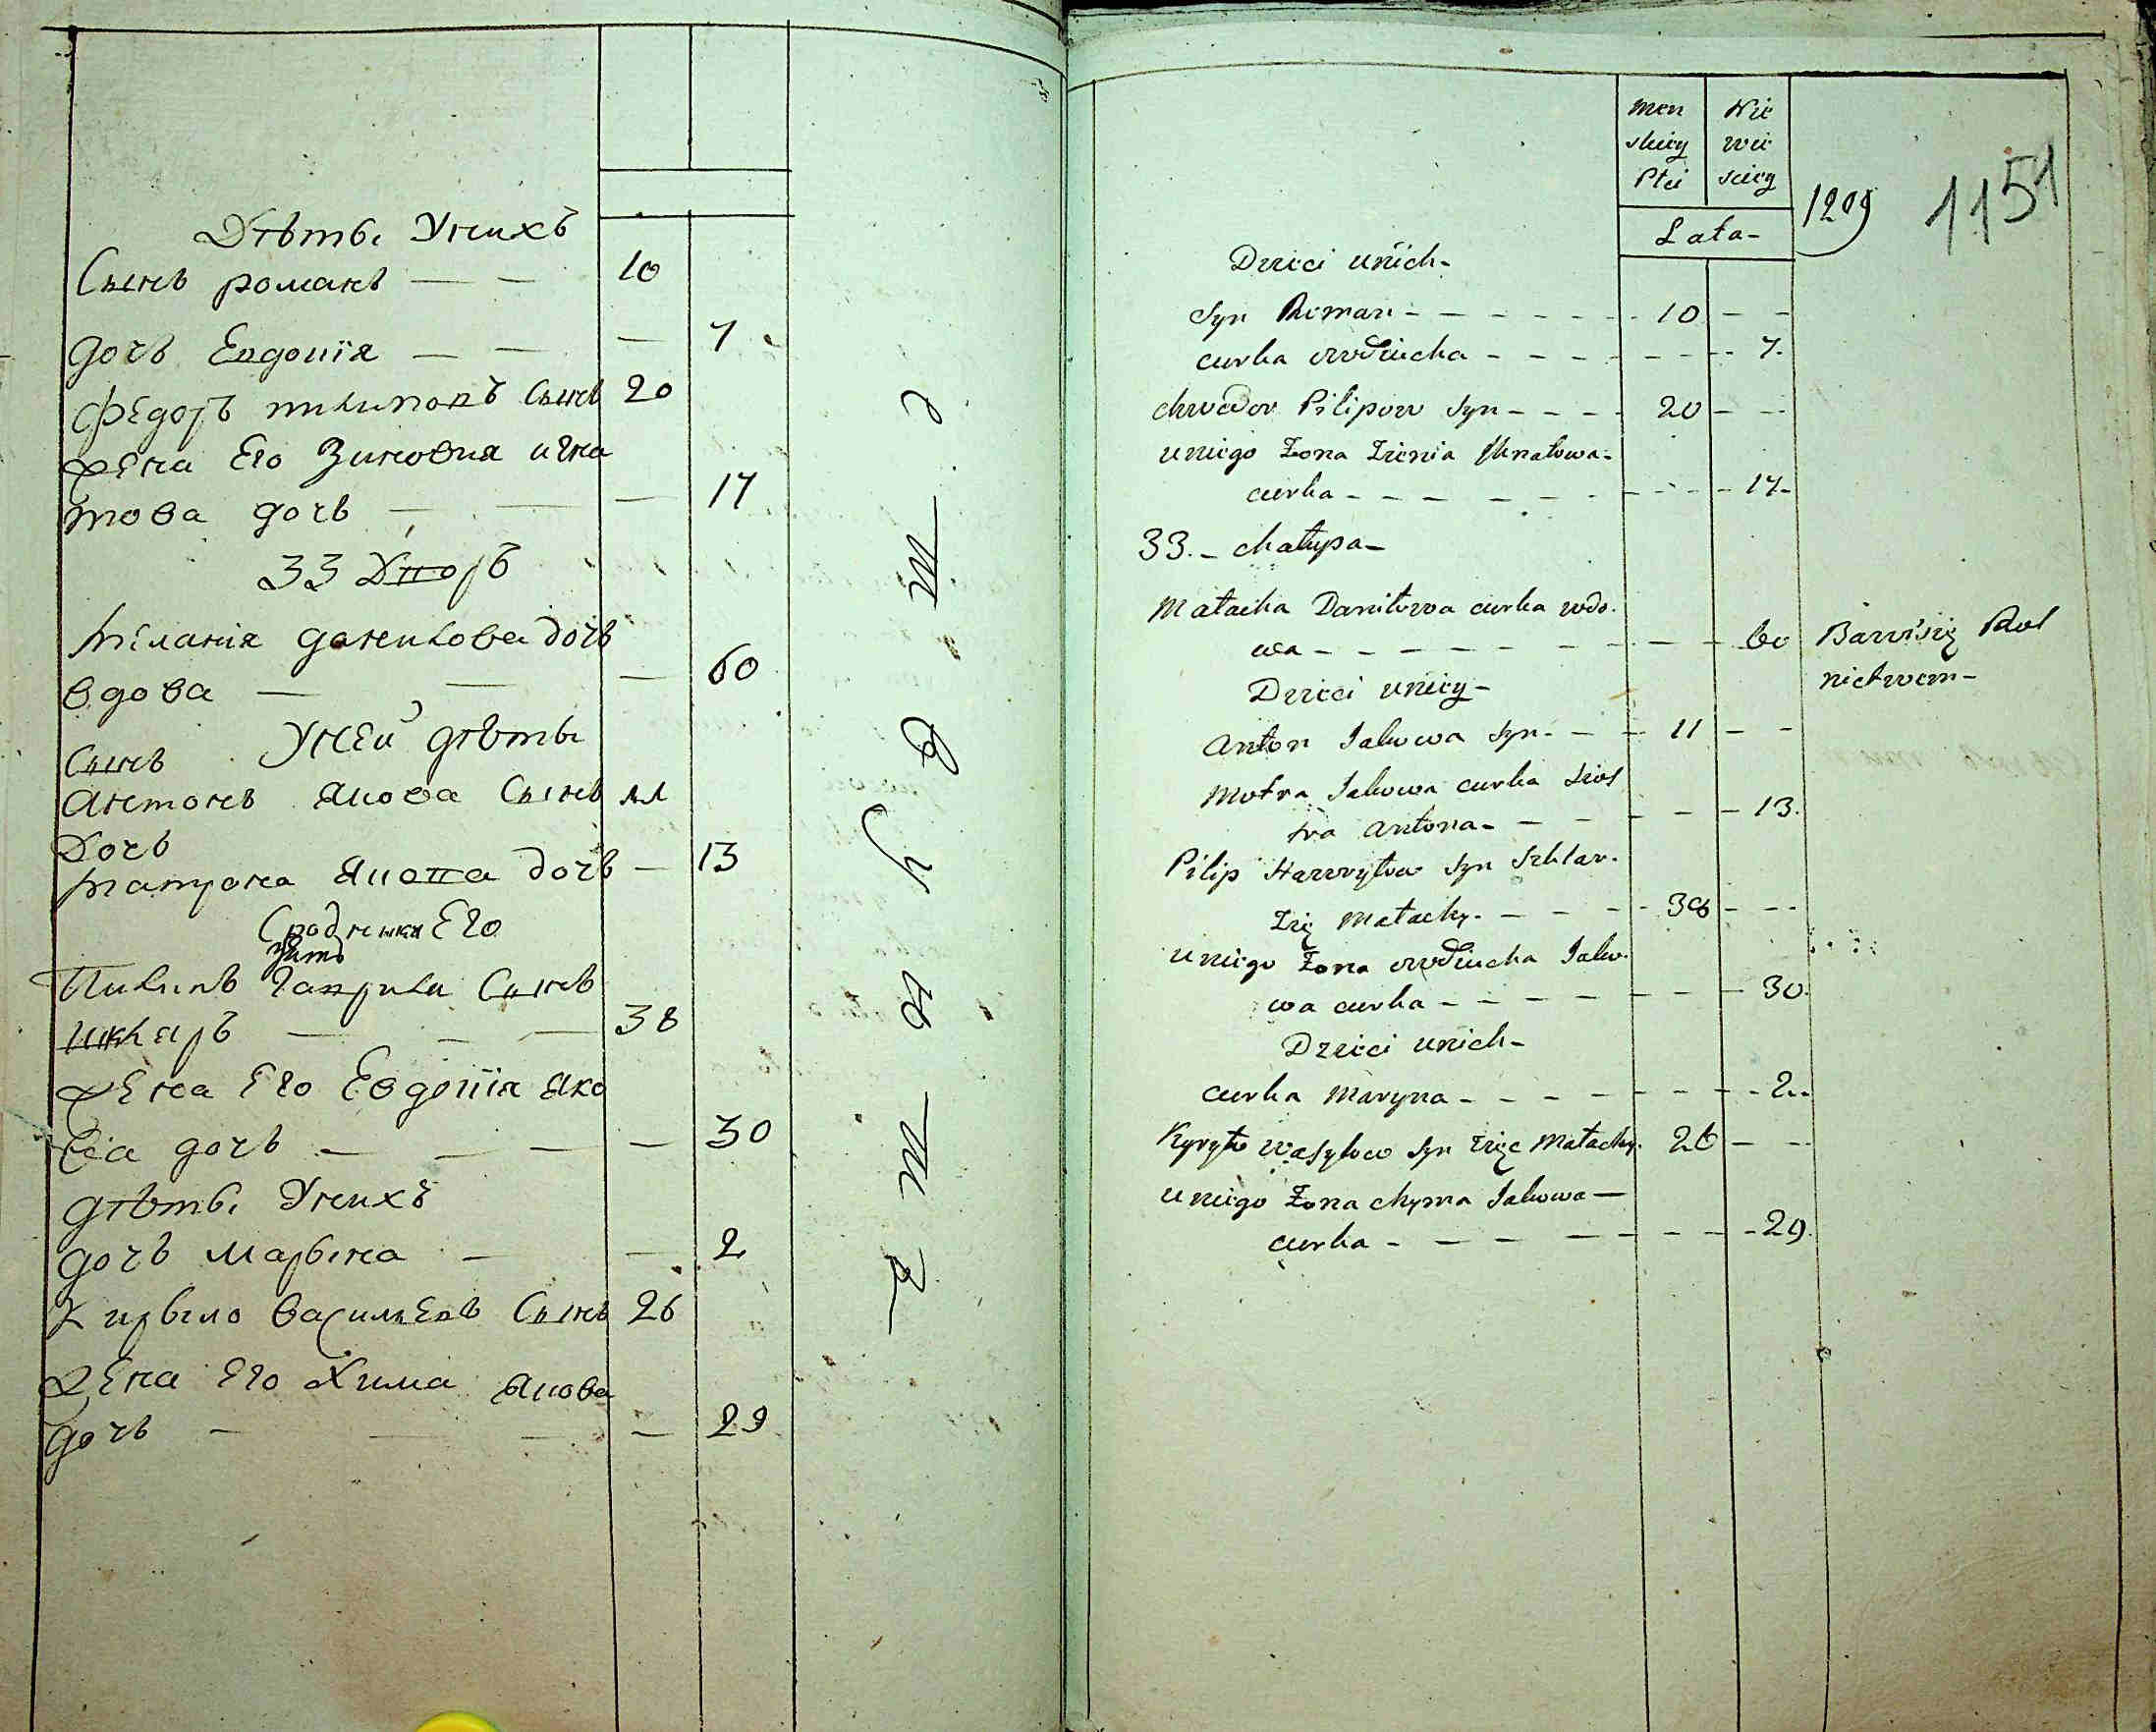 Дѣтьі Унихъ
Сынъ романъ — — 10
дочь Евдокія — — — 7
Федоръ пилиповъ Сынъ 20
жена Его Зиновия игна
това дочь — — — 17
33 Дворъ
меланія данилова дочь
вдова — — — 60
Унеи дѣтьі
Сынъ
Антонъ Якова Сынъ 11
Дочь
матрона Якова дочь — 13
Сродники Его
зять
Пилипъ Гаврили Сынъ
шкляръ — — — 38
жена Его Евдокія Яко
ва дочь — — — — 30
дѣтьі Унихъ
дочь марьіна — — 2
Кирьіло васильевъ Сынъ 26
жена Его Хима Якова
дочь — — — — 29
Men
skiey
Płci
Nie
wie
sciey
Łata-
1209
1151
Dzieci unich-
Syn Roman - - - - - - 10 - -
curka Owdiucha - - - - - - - 7.
Chwedor Pilipow Syn - - - - 20 - -
uniego Żona Zienia Ihnatowa-
curka - - - - - - - - - - 17-
33.- chałupa-
Małacha Daniłowa curka wdo-
wa - - - - - - - - - 60
Barwisię Rol
nictwem-
Dzieci uniey-
Anton Jakowa Syn - - - 11 - -
Motra Jakowa curka Sios
tra Antona- - - - - - 13.
Pilip Hawryłow Syn Szklar-
Zię Małachy- - - - - 38 - - -
uniego Żona Owdiucha Jako-
wa curka - - - - - - - - 30.
Dzieci unich-
curka Maryna - - - - - - - - 2-
Kyryło Wasylow Syn Zięc Małachy- 26 - -
uniego Żona Chyma Jakowa-
curka - - - - - - - - - 29.